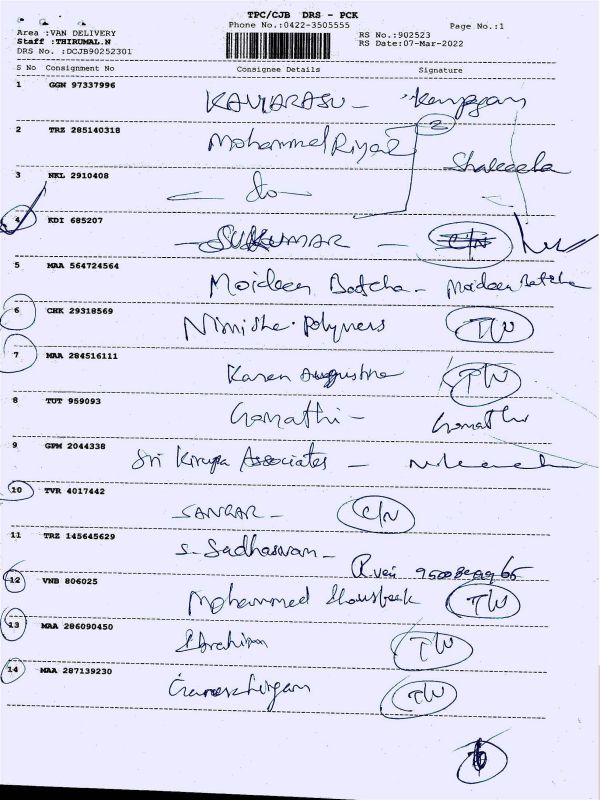 TPC/CJB DRS - PCK
Phone No.:0422-3505555
Page No.:1
Area :VAN DELIVERY
Staff :THIRUMAL.N
DRS No. :DCJB90252301
RS No.:902523
RS Date:07-Mar-2022
S No Consignment No Consignee Details Signature
1 GGN 97337996
KAVIARASU -
2 TRZ 285140318
Mohammed Riyaz 2
Shakeela
3 NKL 2910408
do
4 KDI 685207
SUKUMAR - C/N
5 MAA 564724564
Moideen Batcha - Moideen Batcha
6 CHK 29318569
Nimisha Polymers T/W
7 MAA 284516111
Karen Augustine T/W
8 TUT 959093
Gomathi - Gomathi
9 GPM 2044338
Sri Kirupa Associates -
10 TVR 4017442
SANGAR - C/N
11 TRZ 145645629
S. Sadhasivam -
12 VNB 806025
Mohammed T/W
13 MAA 286090450
Ibrahim T/W
14 MAA 287139230
T/W
6